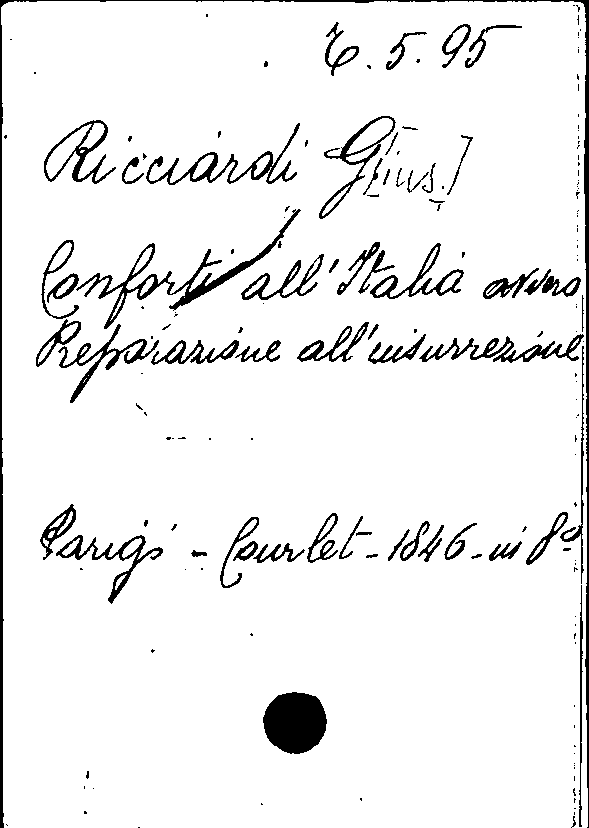 6.5.95
Ricciardi G[ius.]
Conforti all'Italia ovvero
Preparazione all'insurrezione
Parigi - Courlet - 1846 - in 8º